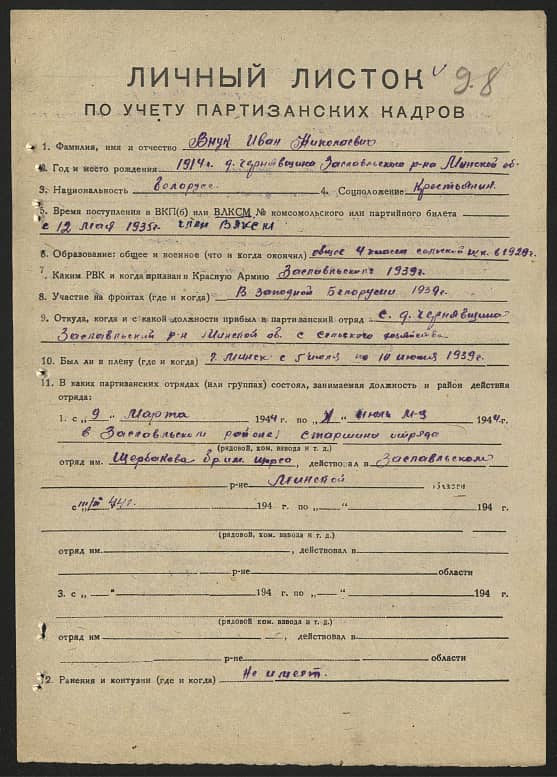 ЛИЧНЫЙ ЛИСТОК 98
ПО УЧЕТУ ПАРТИЗАНСКИХ КАДРОВ
1. Фамилия, имя и отчество Внук Иван Николаевич
2. Год и место рождения 1914 г. д. Чернявщина Заславльского р-на Минской об.
3. Национальность белорусс. 4. Соцположение Крестьянин.
5. Время поступления в ВКП(б) или ВЛКСМ № комсомольского или партийного билета
с 12 мая 1935 г. член ВЛКСМ
6. Образование: общее и военное (что и когда окончил) общее 4 класса сельской шк. в 1928 г.
7. Каким РВК и когда призван в Красную Армию Заславльским 1939 г.
8. Участие на фронтах (где и когда) В Западной Белоруссии 1939 г.
9. Откуда, когда и с какой должности прибыл в партизанский отряд с. д. Чернявщина
Заславльский р-н Минской об. с сельского хозяйства
10. Был ли в плену (где и когда) г. Минск с 5 июля по 10 июля 1939 г.
11. В каких партизанских отрядах (или группах) состоял, занимаемая должность и район действия
отряда:
1. с „9“ Марта 1944 г. по „ “ июль м-ц 1944 г.
в Заславльском районе старшина отряда
(рядовой, ком. взвода и т. д.)
отряд им. Щербакова бриг. , действовал в Заславльском
р-не Минской области
с 44 г. 194 г. по „ “ 194 г.
(рядовой, ком. взвода и т. д.)
отряд им. , действовал в
р-не области
3. с „ “ 194 г. по „ “ 194 г.
(рядовой, ком. взвода и т. д.)
отряд им , действовал в
р-не области
12. Ранения и контузии (где и когда) Не имеет.